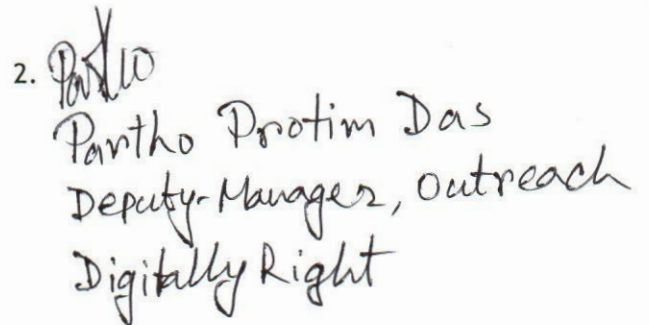 2. Partho
Partho Protim Das
Deputy-Manager, Outreach
Digitally Right